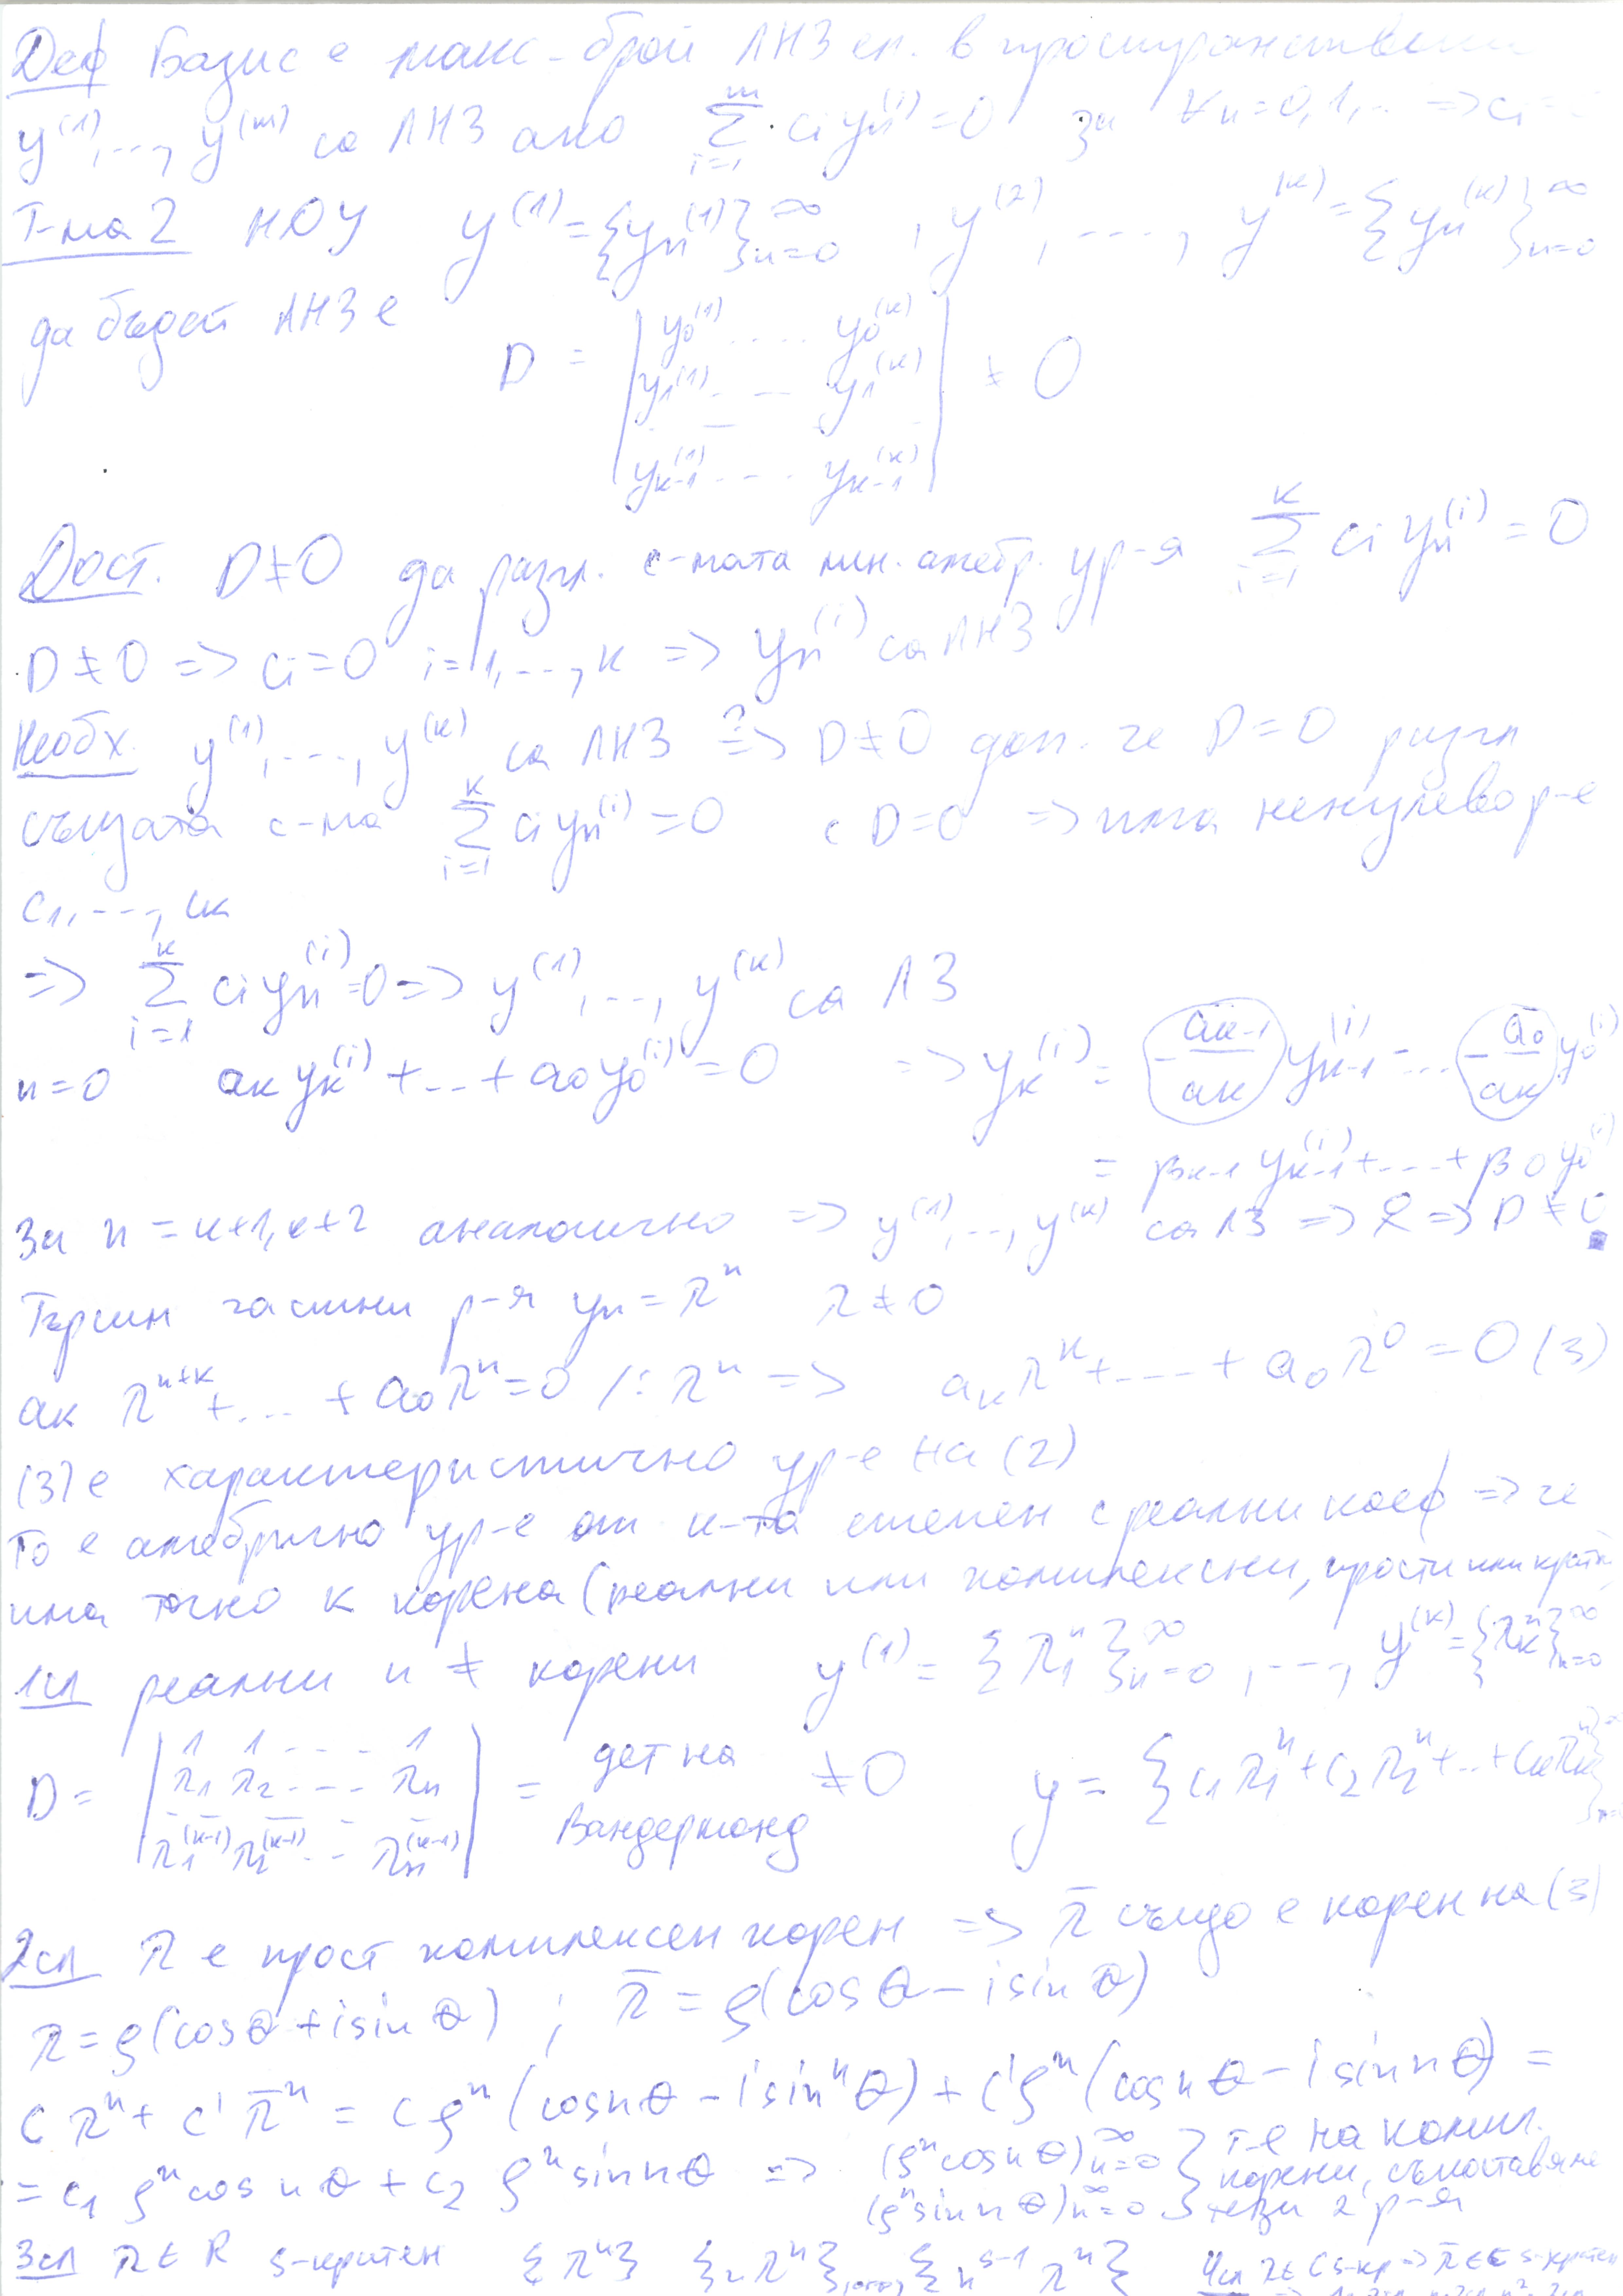 Деф Базис е макс-брой ЛНЗ ел. в пространството
y^(1),...,y^(m) са ЛНЗ ако \sum_{i=1}^{m} c_i y_n^(i) = 0 за ∀n=0,1,.. => c_i =
Т-ма 2 НДУ y^(1) = {y_n^(1)}_{n=0}^∞, y^(2),...., y^(k) = {y_n^(k)}_{n=0}^∞
да бъдат ЛНЗ е
D = | y_0^(1) .... y_0^(k) |
| y_1^(1) ... y_1^(k) | ≠ 0
| y_{k-1}^(1) .... y_{k-1}^(k) |
Дост. D≠0 да разгл. с-мата лин. алгебр. ур-я \sum_{i=1}^{k} c_i y_n^(i) = 0
D≠0 => c_i=0 i=1,...,k => y_n^(i) са ЛНЗ
Необх. y^(1),...,y^(k) са ЛНЗ =>? D≠0 доп. че D=0 разгл
същата с-ма \sum_{i=1}^{k} c_i y_n^(i) = 0 с D=0 => има ненулево р-е
c_1,...,c_k
=> \sum_{i=1}^{k} c_i y_n^(i) =0 => y^(1),...,y^(k) са ЛЗ
n=0 a_k y_k^(i) + ... + a_0 y_0^(i) = 0 => y_k^(i) = -a_{k-1}/a_k y_{k-1}^(i) - ... -a_0/a_k y_0^(i)
= β_{k-1} y_{k-1}^(i) + ... + β_0 y_0^(i)
За n = k+1, k+2 аналогично => y^(1),..,y^(k) са ЛЗ => => D ≠ 0
Търсим частни р-я y_n = λ^n λ ≠ 0
a_k λ^{n+k} + ... + a_0 λ^n = 0 /: λ^n => a_k λ^k + .... + a_0 λ^0 = 0 (3)
(3) е характеристично ур-е на (2)
То е алгебрично ур-е от к-та степен с реални коеф => че
има точно k корена (реални или комплексни, прости или кратн
1сл реални и ≠ корени y^(1) = {λ_1^n}_{n=0}^∞, ..., y^(k) = {λ_k^n}_{n=0}^∞
D = | 1 1 .... 1 |
| λ_1 λ_2 .... λ_n | = дет на Вандермонд ≠ 0 y = {c_1 λ_1^n + c_2 λ_2^n + .. + c_k λ_k^n}
| λ_1^(k-1) λ_2^(k-1) ... λ_n^(k-1) |
2сл λ е прост комплексен корен => \bar{λ} също е корен на (3)
λ = ρ(cosθ + i sin θ) ; \bar{λ} = ρ(cosθ - i sin θ)
c λ^n + c' \bar{λ}^n = c ρ^n (cos nθ - i sin nθ) + c' ρ^n (cos nθ - i sin nθ) =
= c_1 ρ^n cos nθ + c_2 ρ^n sin nθ => (ρ^n cos nθ)_{n=0}^∞ } т-е на компл.
(ρ^n sin nθ)_{n=0}^∞ } корени, съпоставяме
тези 2 р-я
3сл λ ∈ R s-кратен {λ^n} {n λ^n},...,{n^{s-1} λ^n} 4сл λ ∈ C s-кр => \bar{λ} ∈ C s-кратен